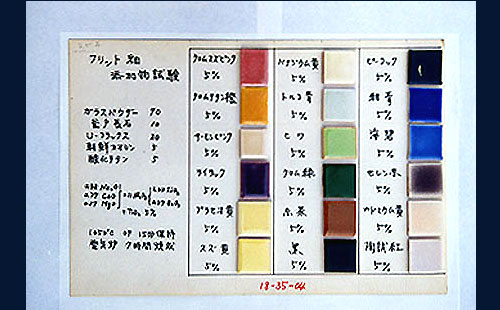 フリット釉
添加物試験
ガラスパウダー 70
釜戸長石 10
U-フラックス 20
朝鮮カオリン 5
酸化チタン 5
1050℃ OF 15分保持
電気炉 7時間焼成
クロムスズピンク
5%
クロムチタン橙
5%
サーモンピンク
5%
ライラック
5%
プラセオ黄
5%
スズ黄
5%
バナジウム黄
5%
トルコ青
5%
ヒワ
5%
クロム緑
5%
赤茶
5%
黒
5%
ピーコック
5%
紺青
5%
海碧
5%
セレン赤
5%
カドミウム黄
5%
陶試紅
5%
18-35-04